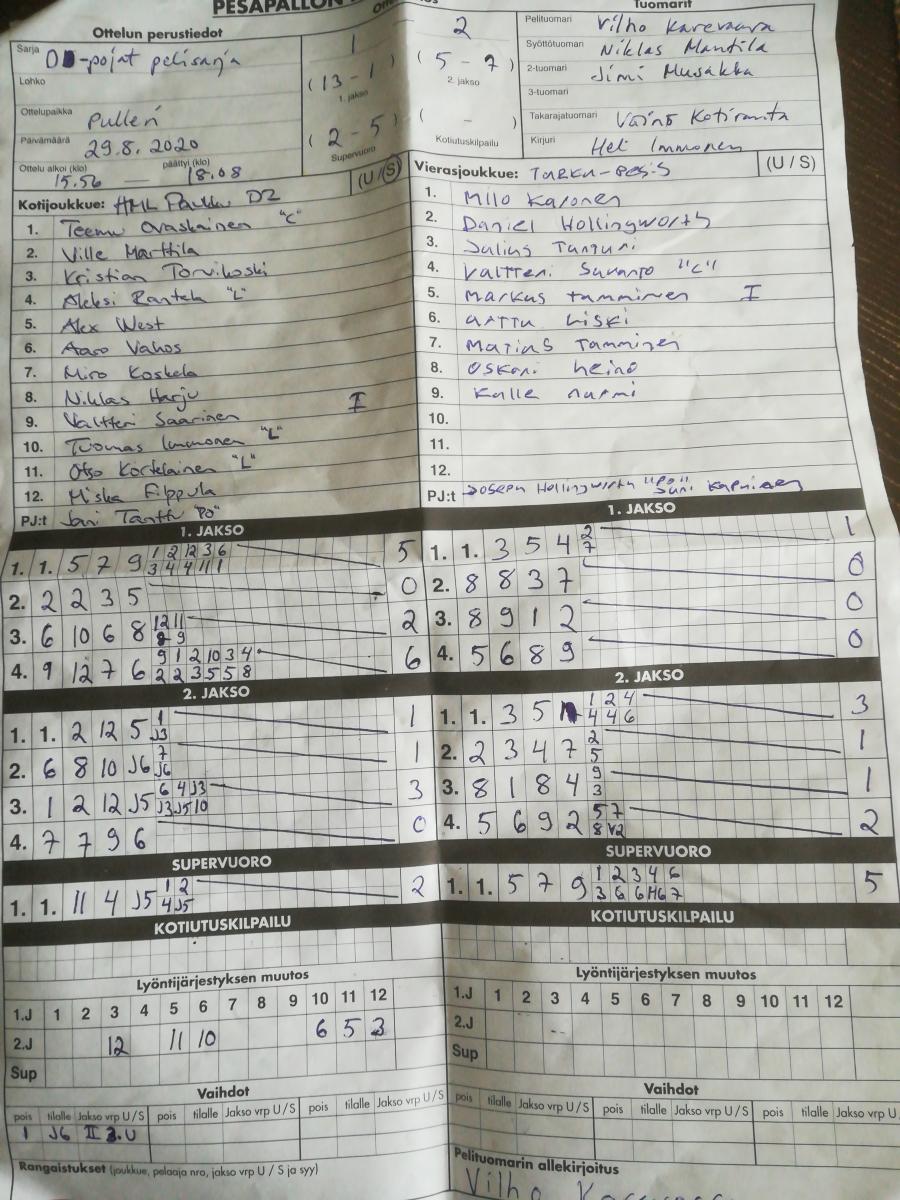 PESÄPALLON
Tuomarit
Ottelun perustiedot
Sarja
-pojat pelisarja
Lohko
Ottelupaikka
Pulleri
Päivämäärä
29.8.2020
Ottelu alkoi (klo)
15.56
päättyi (klo)
18.08
1
2
( 13 - 1 )
1. jakso
( 5 - 7 )
2. jakso
( 2 - 5 )
Supervuoro
( - )
Kotiutuskilpailu
Pelituomari
Vilho
Syöttötuomari
Niklas Mantila
2-tuomari
Jimi Musakka
3-tuomari
Takarajatuomari
Väinö Kotiranta
Kirjuri
Heli Immonen
Kotijoukkue: HML Pauku D2
(U/S)
1. Teemu Ovaskainen "C"
2. Ville Marttila
3. Kristian Torvikoski
4. Aleksi Rantala "L"
5. Alex West
6. Aaro Vahos
7. Miro Koskela
8. Niklas Harju
9. Valtteri Saarinen I
10. Tuomas Immonen "L"
11. Otso Kortelainen "L"
12. Miska Filppula
PJ:t Jani Tanttu "PO"
Vierasjoukkue: Turku-Pesis
(U/S)
1. Milo Karonen
2. Daniel Hollingworth
3. Julius Tunturi
4. Valtteri Suvanto "C"
5. Markus Tamminen I
6. Arttu Liski
7. Matias Tamminen
8. Oskari Heino
9. Kalle Nurmi
10.
11.
12.
PJ:t Joseph Hollingworth "PO"
1. JAKSO
1. 1. 5 7 9 1 2 12 3 6 5
3 4 4 11 1
2. 2 2 3 5 0
3. 6 10 6 8 12 11 2
8 9
4. 9 12 7 6 9 1 2 10 3 4 6
2 2 3 5 5 8
2. JAKSO
1. 1. 2 12 5 1 1
J3
2. 6 8 10 J6 7 1
J6
3. 1 2 12 J5 6 4 J3 3
J3 J5 10
4. 7 7 9 6 0
SUPERVUORO
1. 1. 11 4 J5 1 2 2
4 J5
KOTIUTUSKILPAILU
Lyöntijärjestyksen muutos
1.J 1 2 3 4 5 6 7 8 9 10 11 12
2.J 12 11 10 6 5 3
Sup
Vaihdot
pois tilalle Jakso vrp U/S pois tilalle Jakso vrp U/S pois tilalle Jakso vrp U/S
1 J6 II 3.U
Rangaistukset (joukkue, pelaaja nro, jakso vrp U / S ja syy)
1. JAKSO
1. 1. 3 5 4 2 1
7
2. 8 8 3 7 0
3. 8 9 1 2 0
4. 5 6 8 9 0
2. JAKSO
1. 1. 3 5 1 2 4 3
4 4 6
2. 2 3 4 7 2 1
5
3. 8 1 8 4 9 1
3
4. 5 6 9 2 5 7 2
8
SUPERVUORO
1. 1. 5 7 9 1 2 3 4 6 5
3 6 6 7
KOTIUTUSKILPAILU
Lyöntijärjestyksen muutos
1.J 1 2 3 4 5 6 7 8 9 10 11 12
2.J --
Sup
Vaihdot
pois tilalle Jakso vrp U/S pois tilalle Jakso vrp U/S pois tilalle Jakso vrp U
Pelituomarin allekirjoitus
Vilho